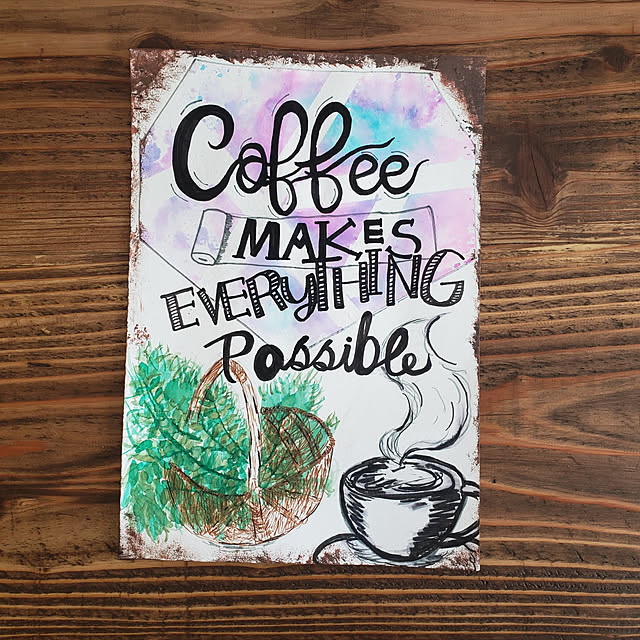 Coffee
MAKES
EVERYTHING
Possible